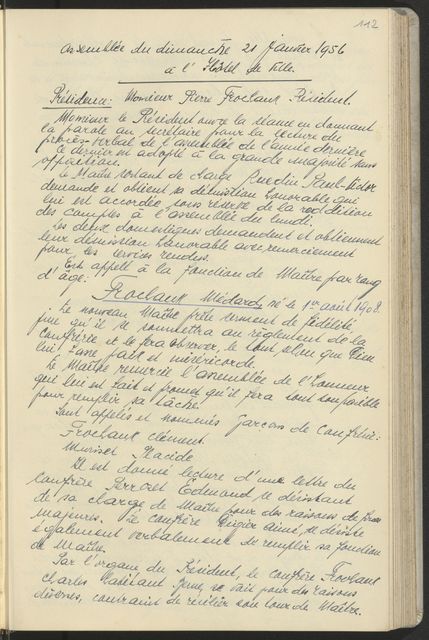 112
Assemblée du dimanche 21 janvier 1956
à l'Hôtel de Ville.
Présidence: Monsieur Pierre Frochaux Président.
Monsieur le Président ouvre la séance en donnant
la parole au secrétaire pour la lecture du
procès-verbal de l'assemblée de l'année dernière
ce dernier est adopté à la grande majorité sans
opposition.
Le Maître sortant de charge Ruedin Paul-Victor
demande et obtient sa démission honorable qui
lui est accordée sous réserve de la reddition
des comptes à l'assemblée du lundi.
Les deux domestiques demandent et obtiennent
leur démission honorable avec remerciement
pour les services rendus.
Est appelé à la fonction de Maître par rang
d'âge:
Frochaux Médard, né le 1er août 1908.
Le nouveau Maître prête serment de fidélité
qu'il se soumettra au règlement de la
Confrérie et le fera observer, le tout, selon que Dieu
lui fasse fait et miséricorde.
Le Maître remercie l'assemblée de l'honneur
qui lui est fait et promet qu'il fera tout son possible
pour remplir sa tâche.
Sont appelés et nommés garçons de Confrérie:
Frochaux Clément
Muriset Placide
Il est donné lecture d'une lettre du
Confrère Perroset Edmond se désistant
de sa charge de Maître pour des raisons de force
majeures. Le confrère aîné, se désiste
également verbalement de remplir sa fonction
de Maître.
Par l'organe du Président, le confrère Frochaux
Charles se voit pour des raisons
diverses, contraint de résilier son tour de Maître.